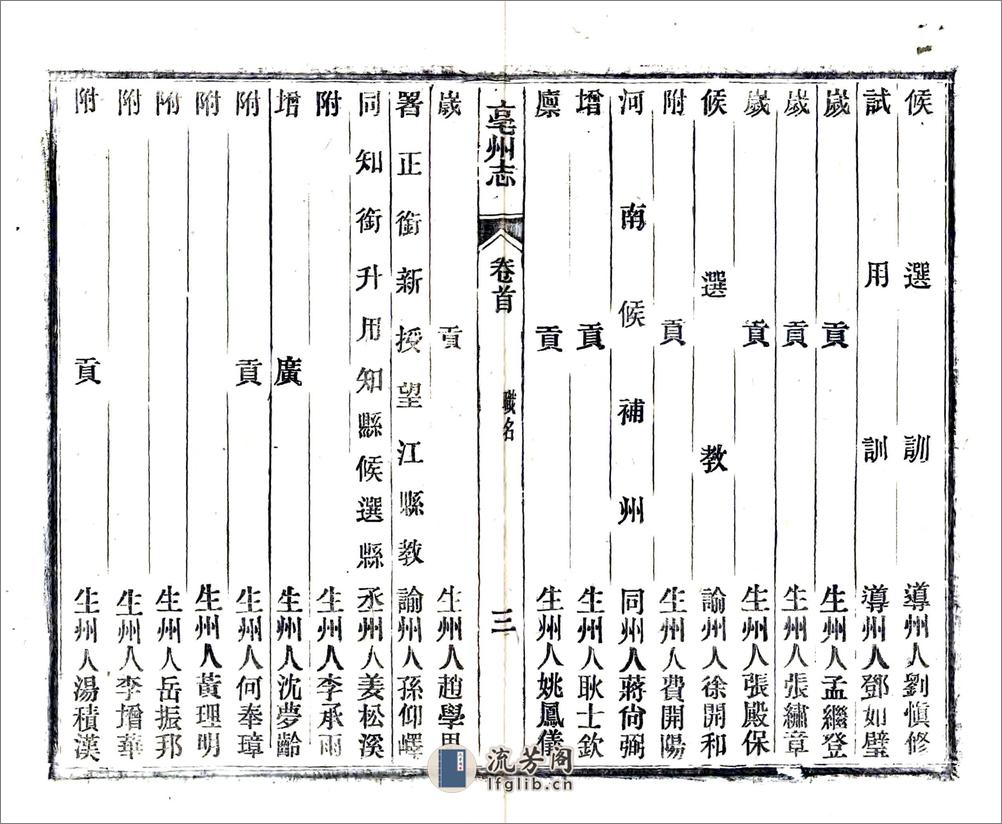 候選訓導州人劉慎修
試用訓導州人鄧如璧
歲貢生州人孟繼登
歲貢生州人張繡章
歲貢生州人張殿保
候選教諭州人徐開和
附貢生州人費開陽
河南候補州同州人蔣尙弼
增貢生州人耿士欽
廩貢生州人姚鳳儀
亳州志
卷首
職名
三
歲貢生州人趙學
署正銜新授望江縣教諭州人孫仰嶧
同知銜升用知縣候選縣丞州人姜松溪
附生州人李承雨
增廣生州人沈夢齡
附貢生州人何奉璋
附生州人黃理明
附生州人岳振邦
附生州人李增華
附貢生州人湯積漢
流芳閣
lfglib.cn